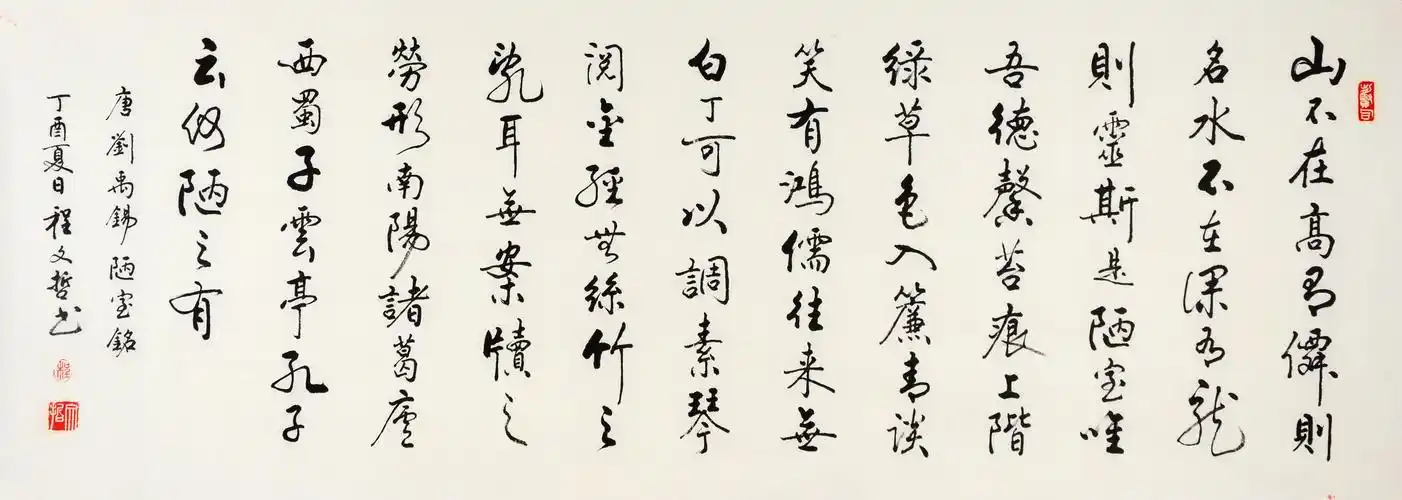 山不在高有僊則
名水不在深有龍
則靈斯是陋室唯
吾德馨苔痕上階
綠草色入簾青談
笑有鴻儒往来無
白丁可以調素琴
閱金經無絲竹之
亂耳無案牘之
勞形南陽諸葛廬
西蜀子雲亭孔子
云何陋之有
唐劉禹錫陋室銘
丁酉夏日程文哲书